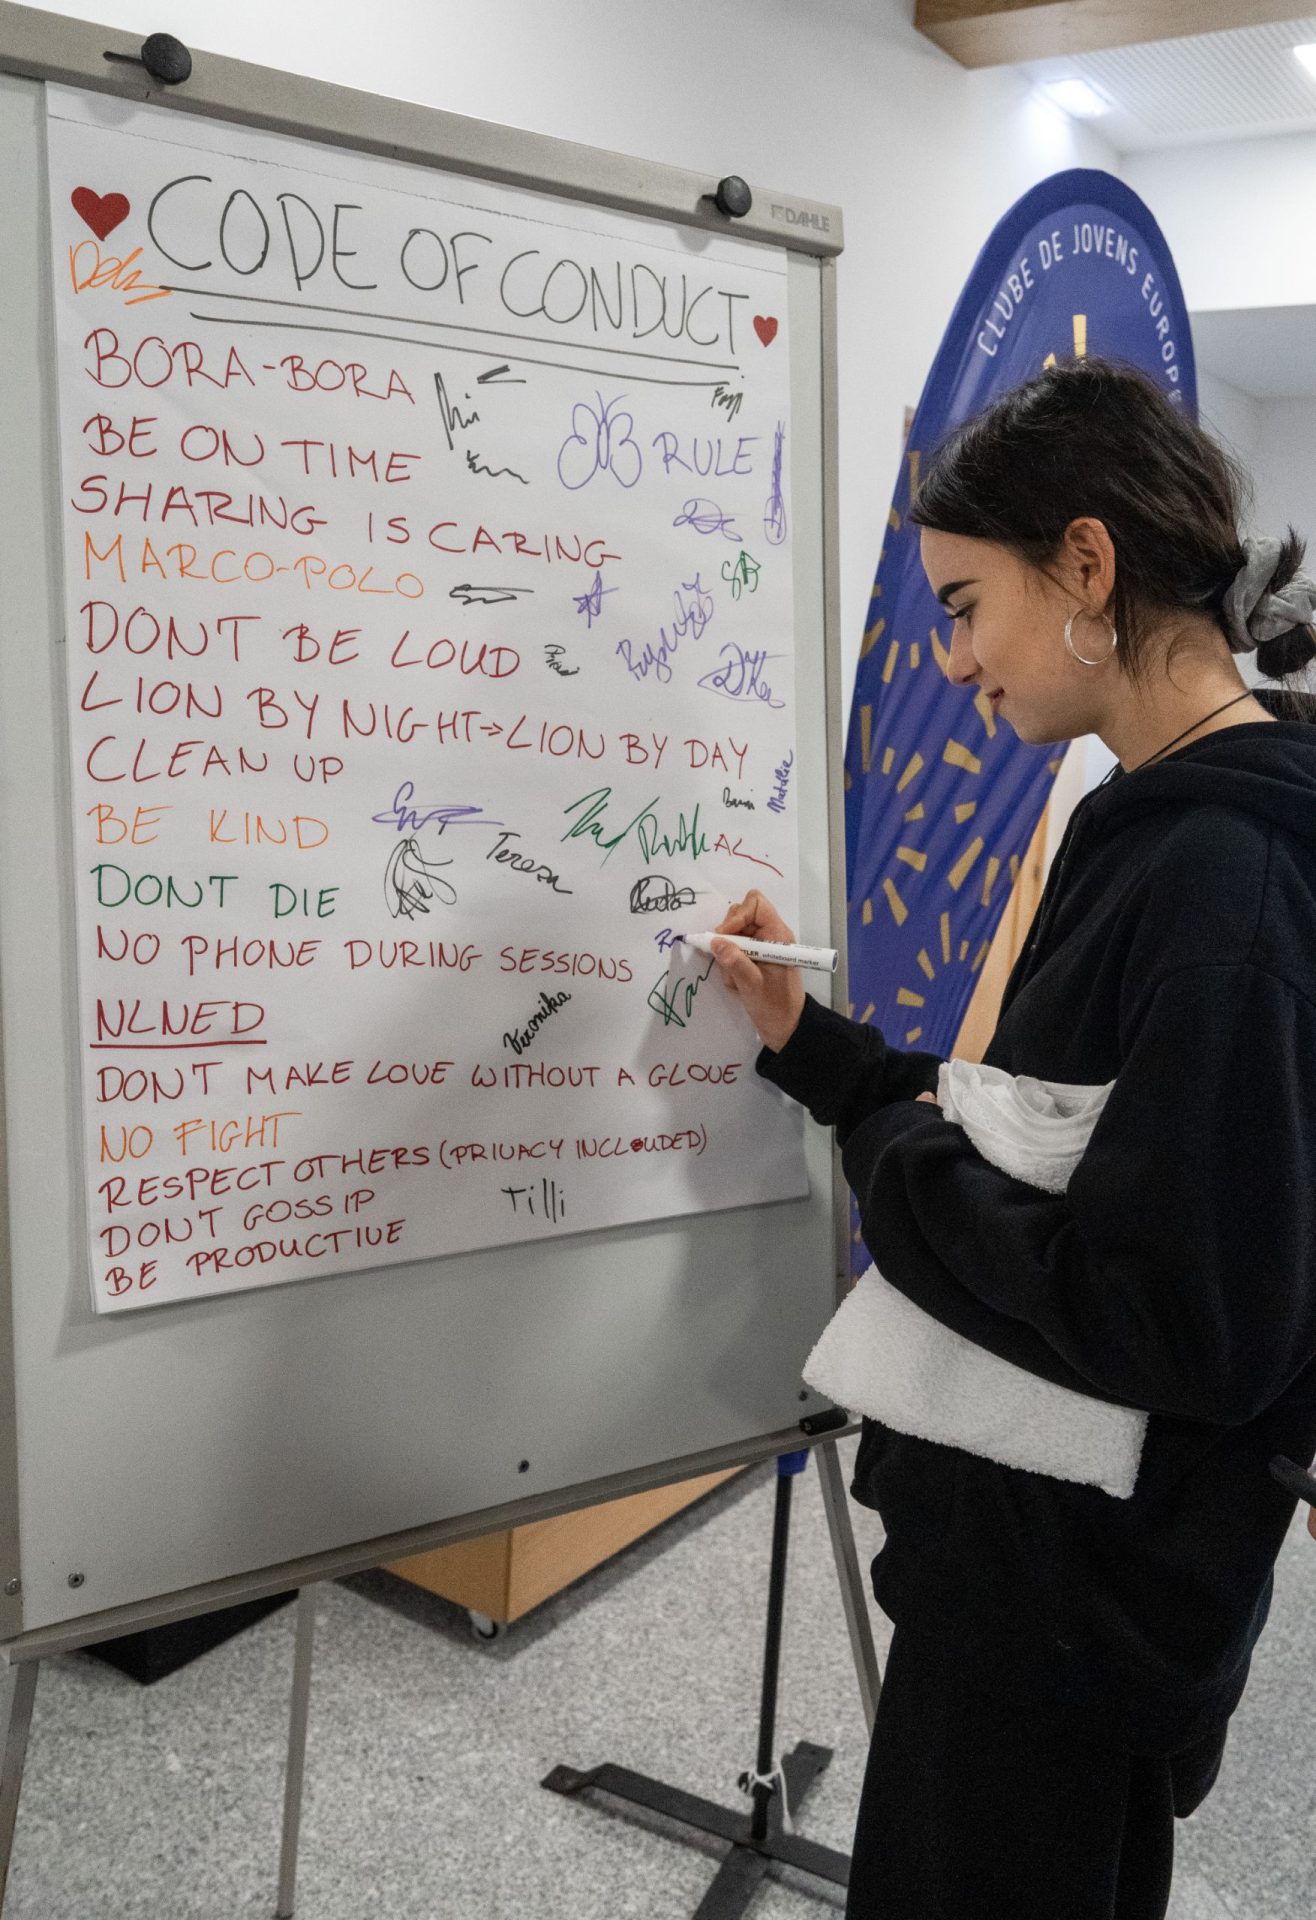 DAHLE
CODE OF CONDUCT
BORA-BORA
BE ON TIME
RULE
SHARING IS CARING
MARCO-POLO
DONT BE LOUD
LION BY NIGHT→LION BY DAY
CLEAN UP
Natalie
BE KIND
Teresa
DONT DIE
NO PHONE DURING SESSIONS
whiteboard marker
NLNED
Veronika
DON'T MAKE LOVE WITHOUT A GLOVE
NO FIGHT
RESPECT OTHERS (PRIVACY INCLOUDED)
DON'T GOSSIP
Tilli
BE PRODUCTIVE
CLUBE DE JOVENS EUROPE